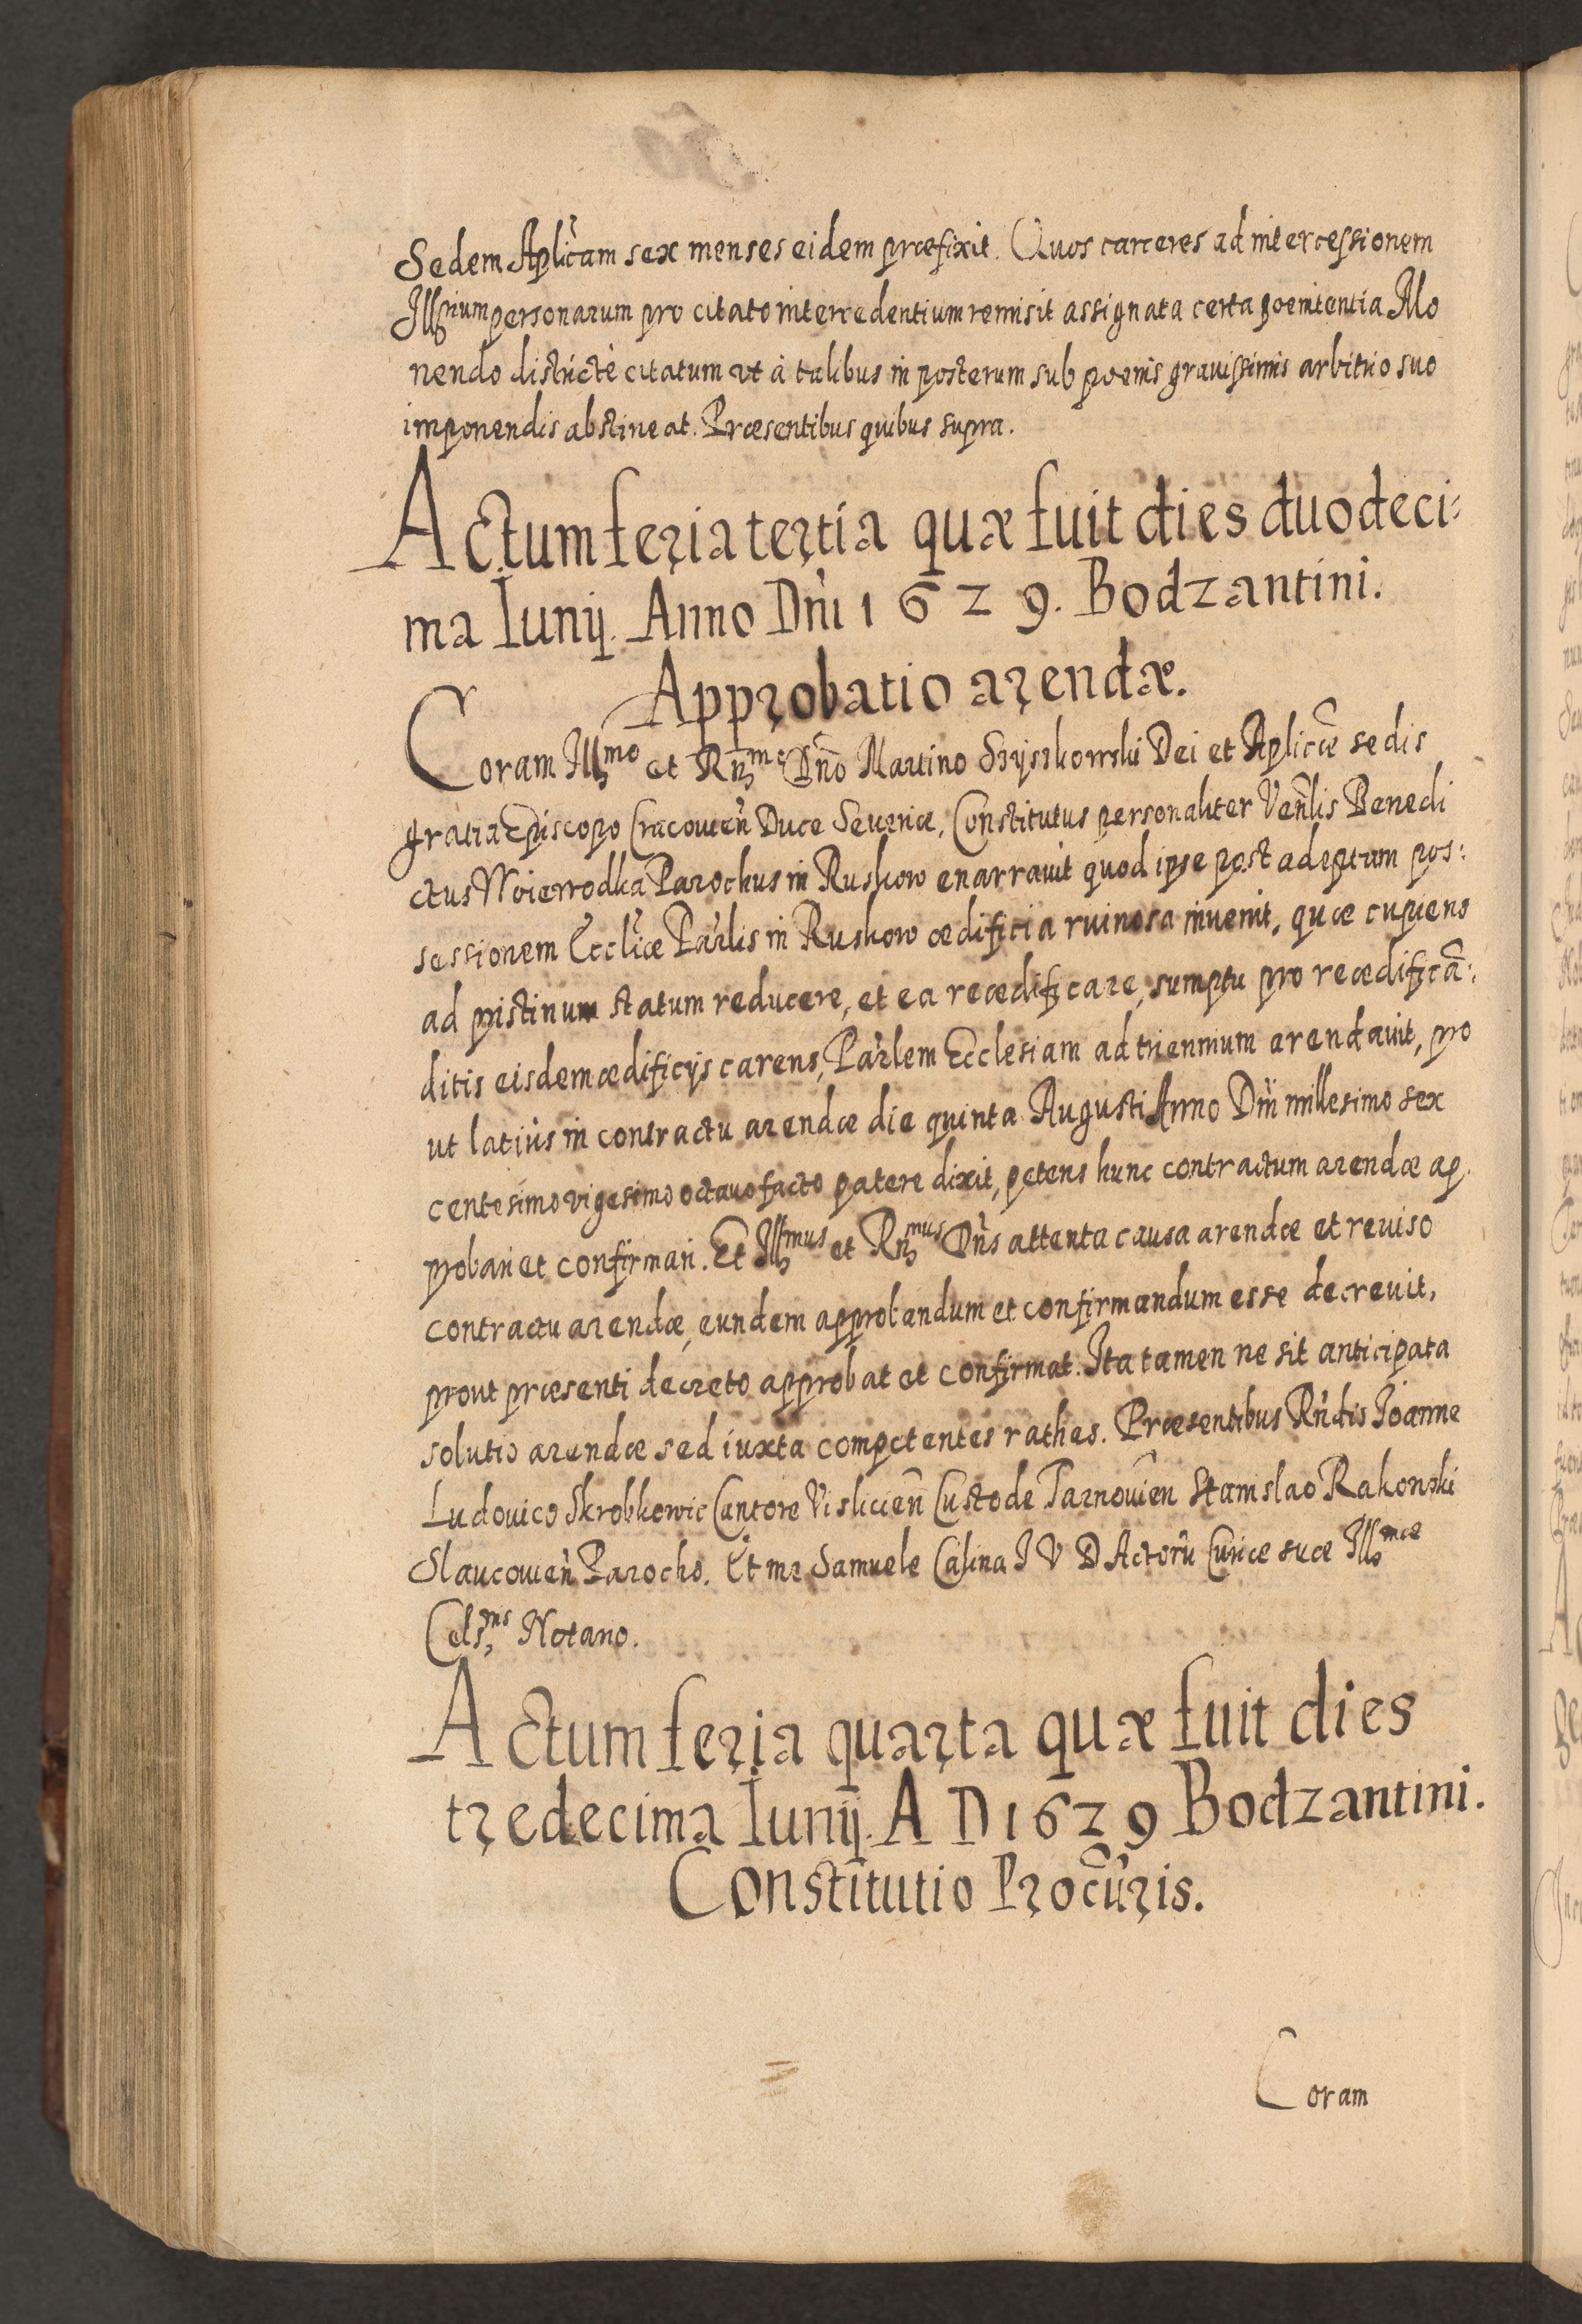 Sedem Aplicam sex menses eidem præfixit. Quos carceres ad intercessionem
Illrium personarum pro citato intercedentium remisit assignata certa poenitentia Mo
nendo districtè citatum vt à talibus in posterum sub poenis gravissimis arbitrio suo
imponendis abstineat. Præsentibus quibus supra.
Actum feria tertia quæ fuit dies duodeci:
ma Iunij. Anno Dñi 1629. Bodzantini.
Approbatio arendæ.
Coram Illmo et Rnmo Dño Martino Szyszkowski Dei et Aplicæ sedis
gratia Episcopo Cracouien Duce Seueriæ, Constitutus personaliter Venlis Benedi
ctus Woiewodka Parochus in Ruskow enarrauit quod ipse post adeptam pos:
sessionem Eccliæ Parlis in Ruskow ædificia ruinosa inuenit, quæ cupiens
ad pristinum statum reducere, et ea reædificare, sumptu pro reædificã:
ditis eisdem ædificijs carens, Parlem Ecclesiam ad triennium arendauit, pro
ut latiùs in contractu arendæ die quinta Augusti Anno Dñi millesimo sex
centesimo vigesimo octauo facto patere dixit, petens hunc contractum arendæ ap
probari et confirmari. Et Illmus et Rnmus Dñs attenta causa arendæ et reuiso
contractu arendæ, eundem approbandum et confirmandum esse decreuit,
prout præsenti decreto approbat et confirmat. Ita tamen ne sit anticipata
solutio arendæ sed iuxta competentes rathas. Præsentibus Rndis Ioanne
Ludouico Skrobkowic Cantore Vislicien Custode Tarnouien Stanislao Rakowski
Slaucouien Parocho. Et me Samuele Calina I V D Actorũ Curiæ suæ Illmæ
Celsnis Notario.
Actum feria quarta quæ fuit dies
tredecima Iunij. A D 1629 Bodzantini.
Constitutio Procũris.
Coram